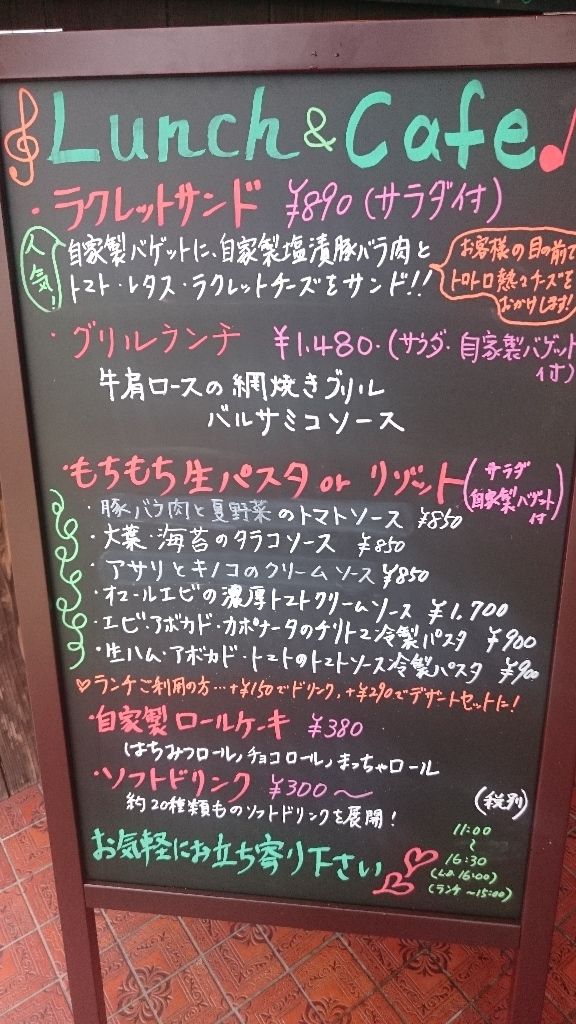 Lunch & Cafe
・ラクレットサンド ¥890 (サラダ付)
人気!
自家製バゲットに、自家製塩漬豚バラ肉と
トマト・レタス・ラクレットチーズをサンド!!
お客様の目の前で
トロトロ熱々チーズを
おかけします!
・グリルランチ ¥1,480・(サラダ・自家製バゲット
付)
牛肩ロースの網焼きグリル
バルサミコソース
・もちもち生パスタ or リゾット
(サラダ
自家製バゲット
付)
・豚バラ肉と夏野菜のトマトソース ¥850
・大葉・海苔のタラコソース ¥850
・アサリとキノコのクリームソース ¥850
・オマールエビの濃厚トマトクリームソース ¥1,700
・エビ・アボカド・カポナータのチリトマ冷製パスタ ¥900
・生ハム・アボカド・トマトのトマトソース冷製パスタ ¥900
♡ランチご利用の方…+¥150でドリンク,+¥290でデザートセットに!
・自家製ロールケーキ ¥380
はちみつロール,チョコロール,まっちゃロール
・ソフトドリンク ¥300〜
約20種類ものソフトドリンクを展開!
(税別)
お気軽にお立ち寄り下さい
11:00
〜
16:30
(L.O 16:00)
(ランチ 〜15:00)